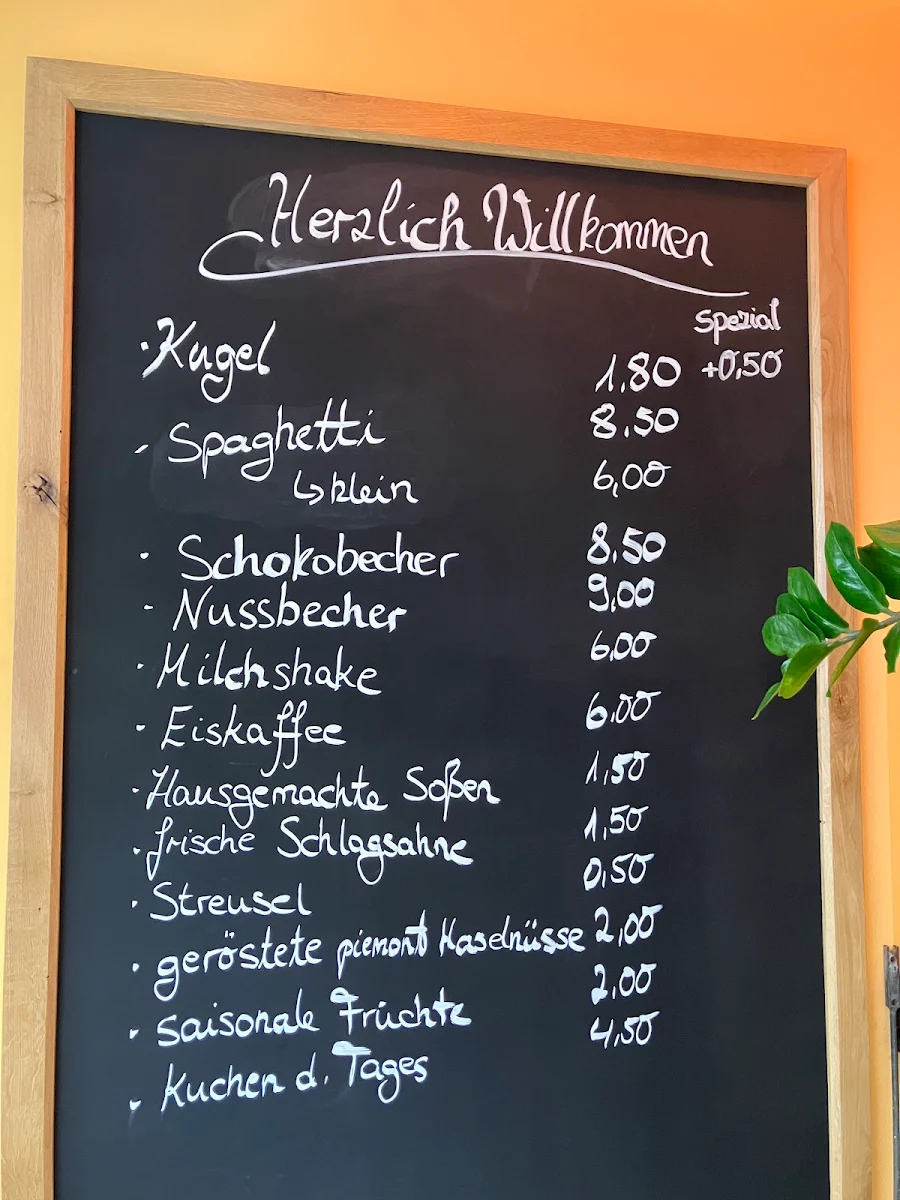 Herzlich Willkommen
Spezial
· Kugel 1,80 +0,50
- Spaghetti 8,50
↳ klein 6,00
· Schokobecher 8,50
- Nussbecher 9,00
· Milchshake 6,00
· Eiskaffee 6,00
· Hausgemachte Soßen 1,50
· frische Schlagsahne 1,50
· Streusel 0,50
· geröstete piemont Haselnüsse 2,00
· saisonale Früchte 2,00
· Kuchen d. Tages 4,50